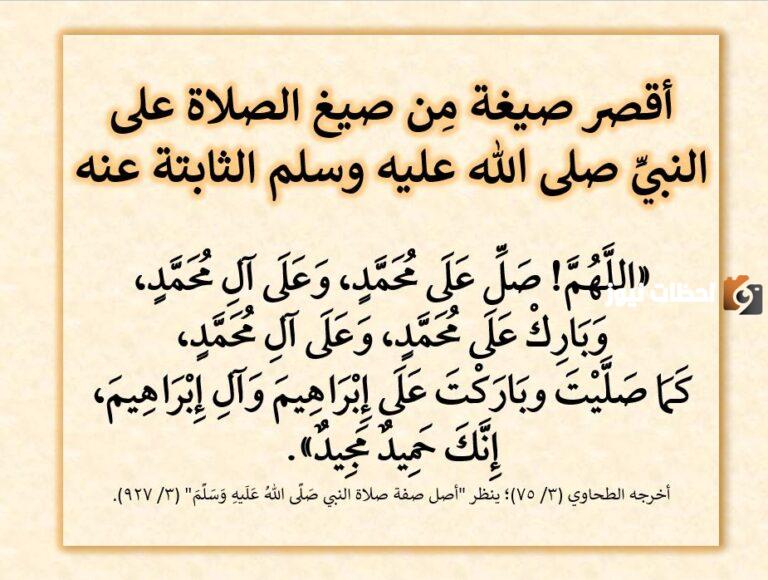 أقصر صيغة مِن صيغ الصلاة على
النبيِّ صلى الله عليه وسلم الثابتة عنه
«اللَّهُمَّ! صَلِّ عَلَى مُحَمَّدٍ، وَعَلَى آلِ مُحَمَّدٍ،
لحظات نيوز
وَبَارِكْ عَلَى مُحَمَّدٍ، وَعَلَى آلِ مُحَمَّدٍ،
كَمَا صَلَّيْتَ وبَارَكْتَ عَلَى إِبْرَاهِيمَ وَآلِ إِبْرَاهِيمَ،
إِنَّكَ حَمِيدٌ مَجِيدٌ».
أخرجه الطحاوي (٣/ ٧٥)؛ ينظر "أصل صفة صلاة النبي صَلّى اللهُ عَلَيهِ وَسَلّمَ" (٣/ ٩٢٧).